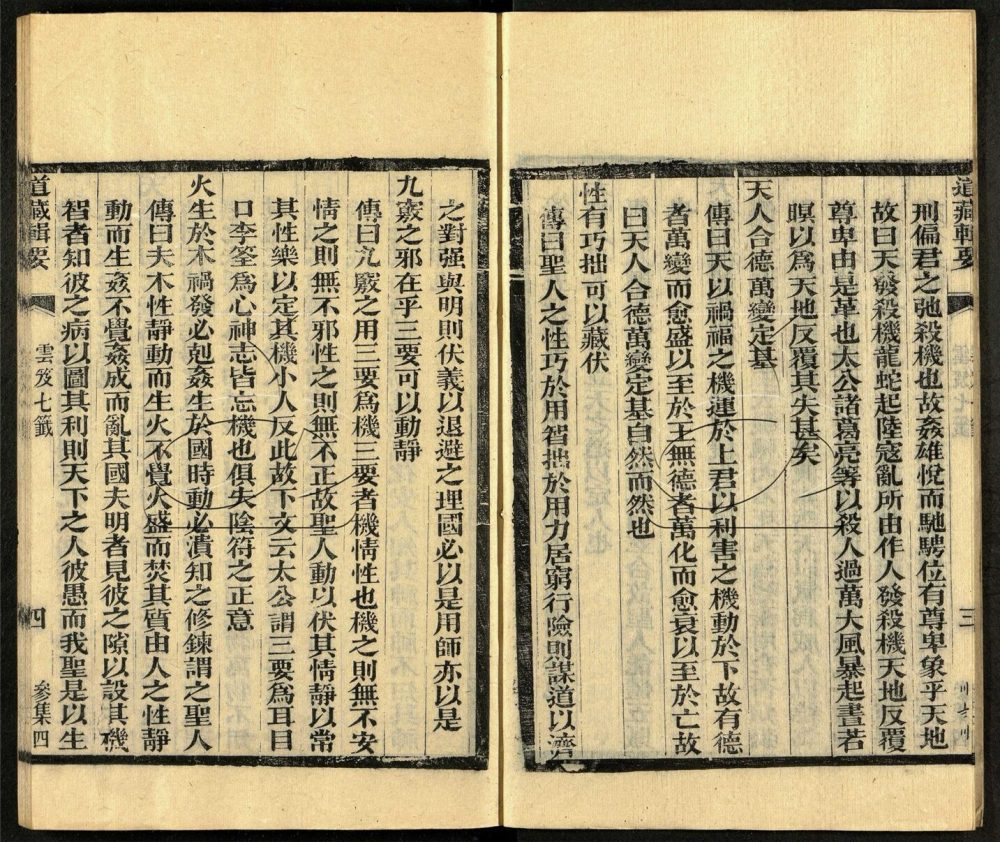 道藏輯要
三
刑偏君之弛殺機也故姦雄悅而馳騁位有尊卑象乎天地
故曰天發殺機龍蛇起陸寇亂所由作人發殺機天地反覆
尊卑由是革也太公諸葛亮等以殺人過萬大風暴起晝若
暝以為天地反覆其失甚矣
天人合德萬變定基
傳曰天以禍福之機運於上君以利害之機動於下故有德
者萬變而愈盛以至於王無德者萬化而愈衰以至於亡故
曰天人合德萬變定基自然而然也
性有巧拙可以藏伏
傳曰聖人之性巧於用智拙於用力居窮行險則謀道以濟
之對强與明則伏義以退避之理國必以是用師亦以是
九竅之邪在乎三要可以動靜
傳曰九竅之用三要為機三要者機情性也機之則無不安
情之則無不邪性之則無不正故聖人動以伏其情靜以常
其性樂以定其機小人反此故下文云太公謂三要為耳目
口李筌為心神志皆忘機也俱失陰符之正意
火生於木禍發必剋姦生於國時動必潰知之修鍊謂之聖人
傳曰夫木性靜動而生火不覺火盛而焚其質由人之性靜
動而生姦不覺姦成而亂其國夫明者見彼之隙以設其機
智者知彼之病以圖其利則天下之人彼愚而我聖是以生
道藏輯要
雲笈七籤
四
參集四